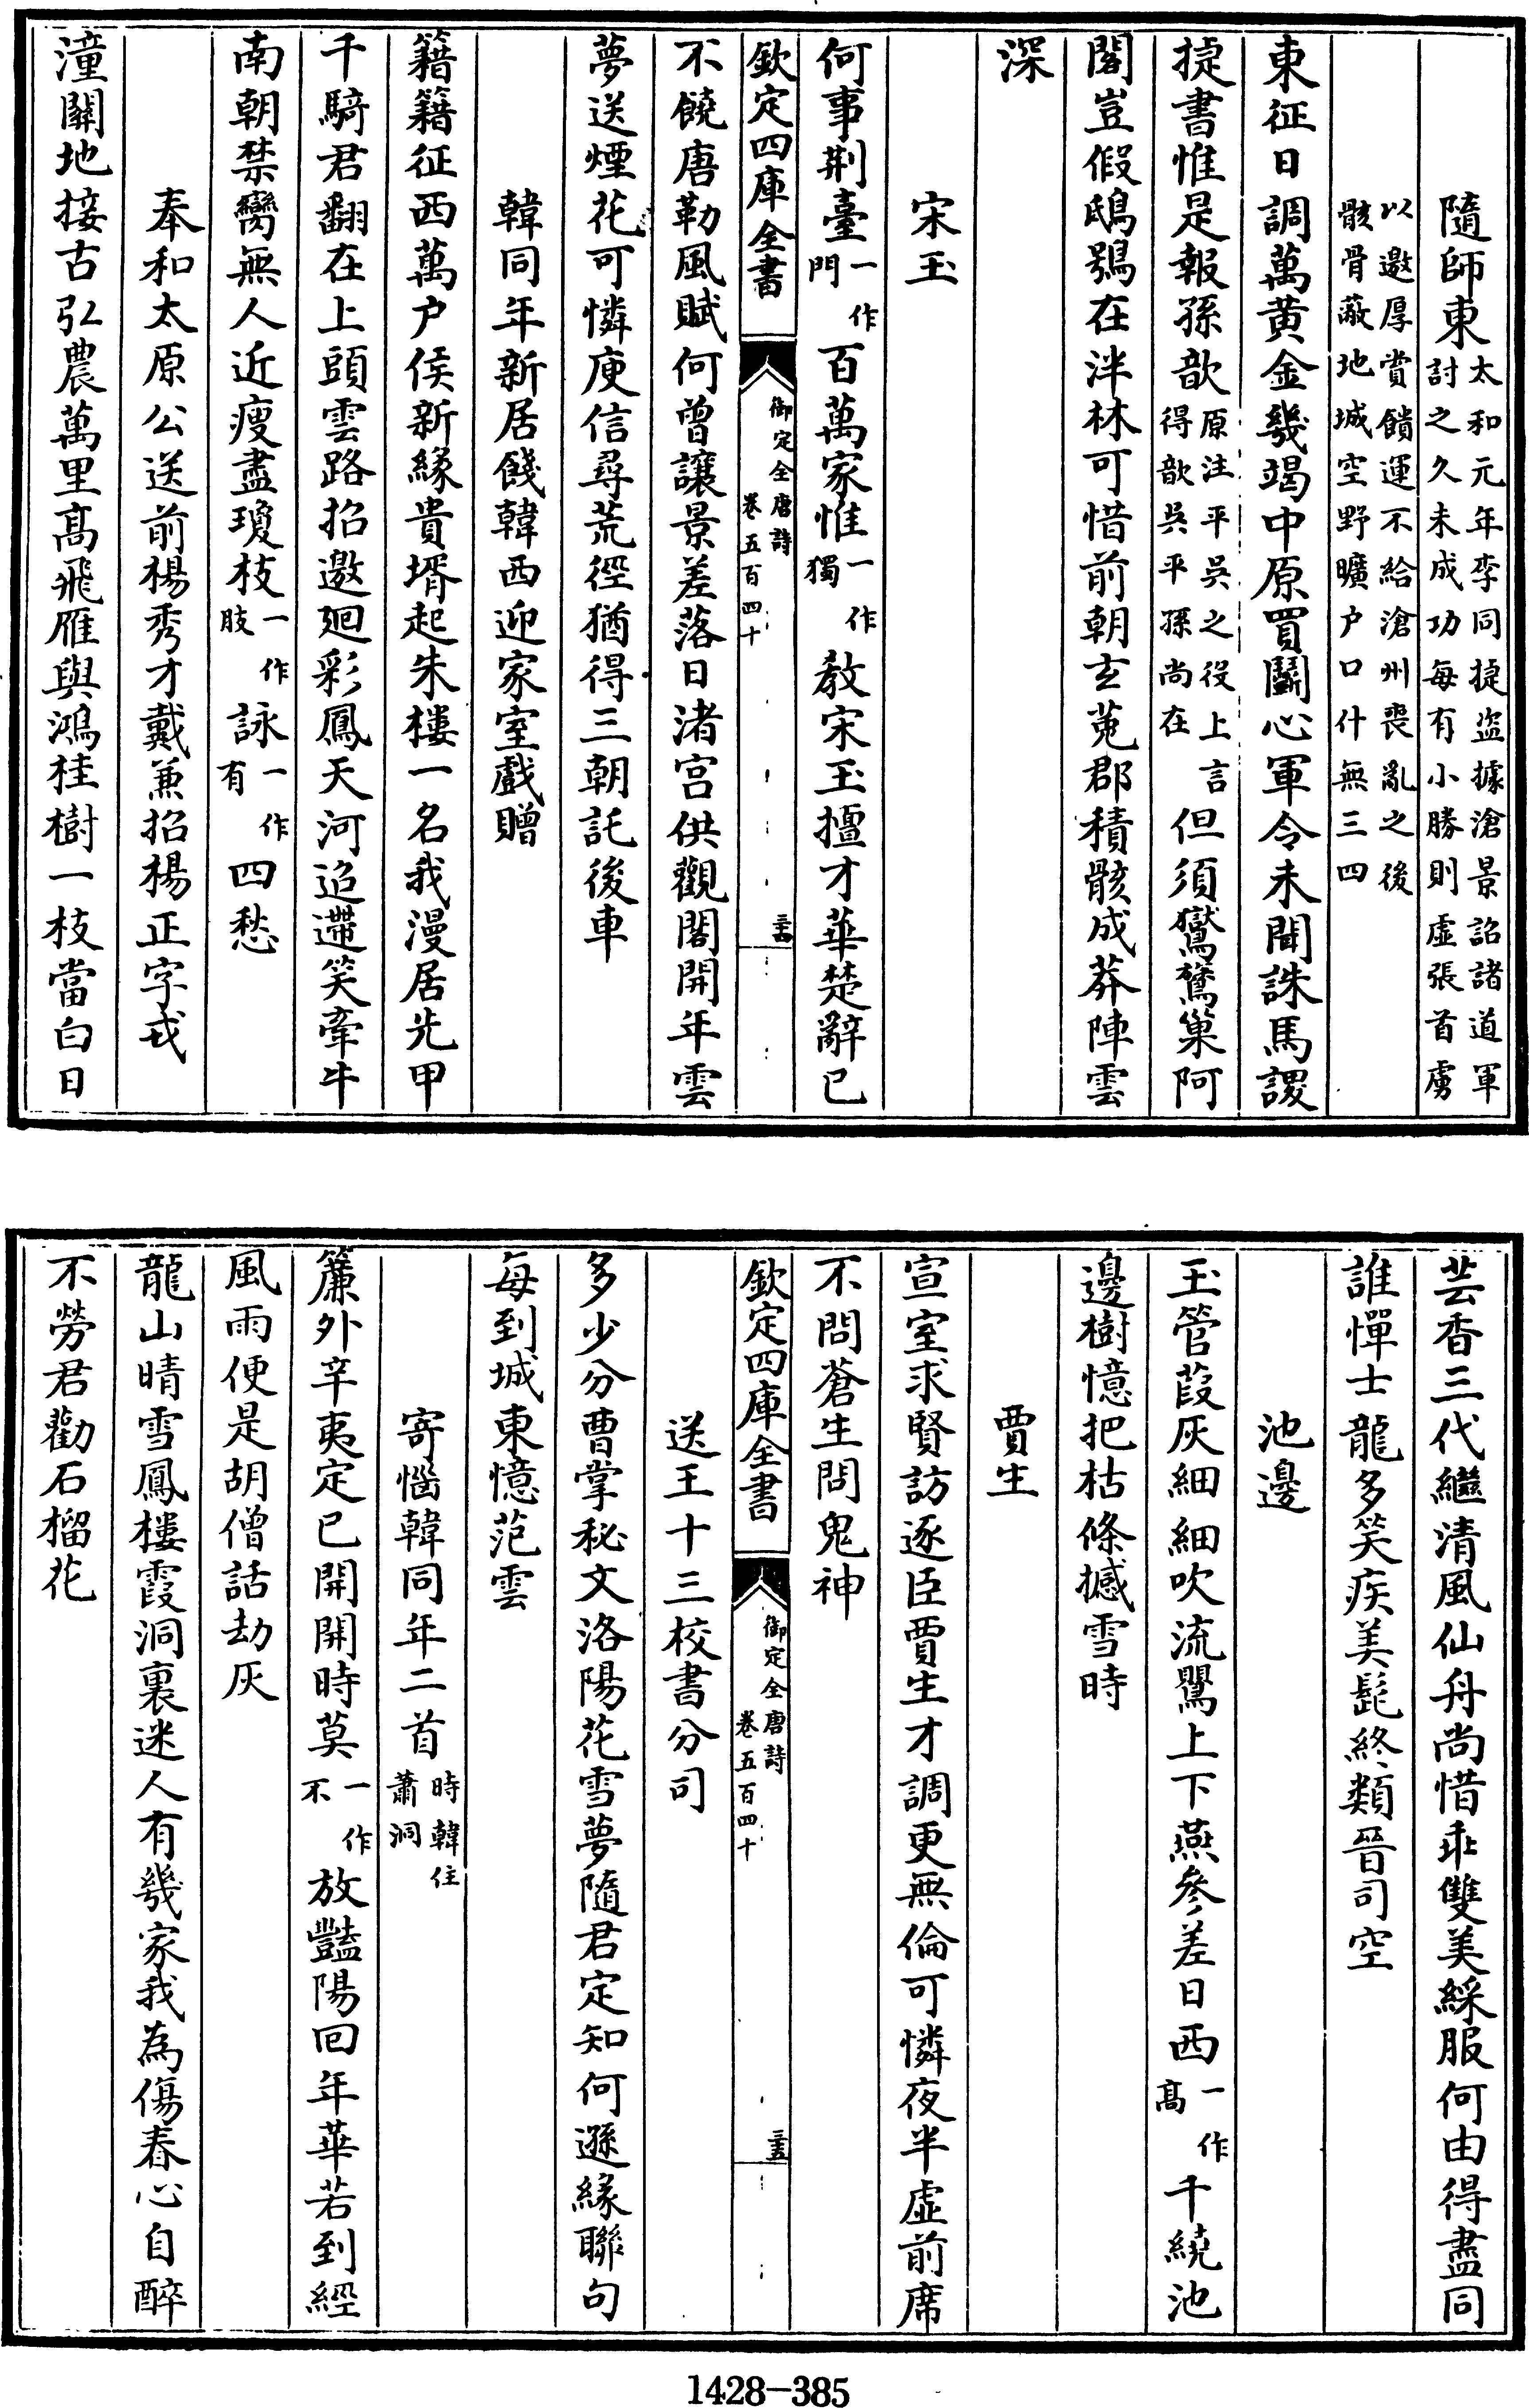 隨師東太和元年李同捷盜據滄景詔諸道軍討之久未成功每有小勝則虛張首虜
以邀厚賞饋運不給滄州喪亂之後骸骨蔽地城空野曠户口什無三四
東征日調萬黄金幾竭中原買鬭心軍令未聞誅馬謖
捷書惟是報孫歆原注平吳之役上言得歆吳平孫尚在但須鸑鷟巢阿
閣豈假鴟鴞在泮林可惜前朝玄菟郡積骸成莽陣雲
深
宋玉
何事荆臺一作門百萬家惟一作獨教宋玉擅才華楚辭已
欽定四庫全書 御定全唐詩卷五百四十 三古
不饒唐勒風賦何曾讓景差落日渚宫供觀閣開年雲
夢送煙花可憐庾信尋荒徑猶得三朝託後車
韓同年新居餞韓西迎家室戲贈
籍籍征西萬户侯新緣貴壻起朱樓一名我漫居先甲
千騎君翻在上頭雲路招邀廻彩鳳天河迢遞笑牽牛
南朝禁臠無人近瘦盡瓊枝一作肢詠一作有四愁
奉和太原公送前楊秀才戴兼招楊正字戎
潼關地接古弘農萬里髙飛雁與鴻桂樹一枝當白日
芸香三代繼清風仙舟尚惜乖雙美綵服何由得盡同
誰憚士龍多笑疾美髭終類晉司空
池邊
玉管葭灰細細吹流鶯上下燕參差日西一作髙千繞池
邊樹憶把枯條撼雪時
賈生
宣室求賢訪逐臣賈生才調更無倫可憐夜半虛前席
不問蒼生問鬼神
欽定四庫全書 御定全唐詩卷五百四十 三五
送王十三校書分司
多少分曹掌秘文洛陽花雪夢隨君定知何遜緣聯句
每到城東憶范雲
寄惱韓同年二首時韓住蕭洞
簾外辛夷定已開開時莫一作不放豔陽回年華若到經
風雨便是胡僧話劫灰
龍山晴雪鳳樓霞洞裏迷人有幾家我為傷春心自醉
不勞君勸石榴花
1428-385